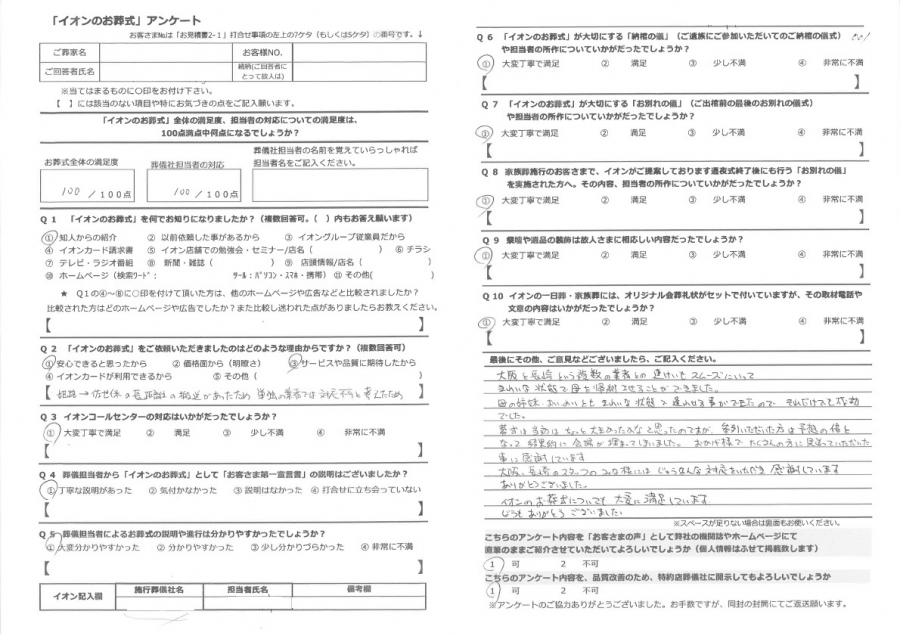 「イオンのお葬式」アンケート
お客さまNoは「お見積書2-1」打合せ事項の左上の7ケタ（もしくは5ケタ）の番号です。↓
ご葬家名 お客様NO.
ご回答者氏名 続柄(ご回答者にとって故人は)
※当てはまるものに〇印をお付け下さい。
【 】には該当のない項目や特にお気づきの点をご記入願います。
「イオンのお葬式」全体の満足度、担当者の対応についての満足度は、
100点満点中何点になるでしょうか？
葬儀社担当者の名前を覚えていらっしゃれば
担当者名をご記入ください。
お葬式全体の満足度 葬儀社担当者の対応
100 / 100点 100 / 100点
Q 1 「イオンのお葬式」を何でお知りになりましたか？（複数回答可。( )内もお答え願います）
① 知人からの紹介 ② 以前依頼した事があるから ③ イオングループ従業員だから
④ イオンカード請求書 ⑤ イオン店舗での勉強会・セミナー/店名（ ） ⑥ チラシ
⑦ テレビ・ラジオ番組 ⑧ 新聞・雑誌（ ） ⑨ 店頭情報/店名（ ）
⑩ ホームページ（検索ﾜｰﾄﾞ： ﾂｰﾙ：ﾊﾟｿｺﾝ・ｽﾏﾎ・携帯） ⑪ その他( )
★ Q1の④～⑧に〇印を付けて頂いた方は、他のホームページや広告などと比較されましたか？
比較された方はどのホームページや広告でしたか？また比較し迷われた点がありましたらお教えください。
【 】
Q 2 「イオンのお葬式」をご依頼いただきましたのはどのような理由からですか？（複数回答可）
① 安心できると思ったから ② 価格面から（明瞭さ） ③ サービスや品質に期待したから
④ イオンカードが利用できるから ⑤ その他（ ）
Q 3 イオンコールセンターの対応はいかがだったでしょうか？
① 大変丁寧で満足 ② 満足 ③ 少し不満 ④ 非常に不満
【 】
Q 4 葬儀担当者から「イオンのお葬式」として「お客さま第一宣言書」の説明はございましたか？
① 丁寧な説明があった ② 気付かなかった ③ 説明はなかった ④ 打合せに立ち会っていない
【 】
Q 5 葬儀担当者によるお葬式の説明や進行は分かりやすかったでしょうか？
① 大変分かりやすかった ② 分かりやすかった ③ 少し分かりづらかった ④ 非常に不満
【 】
イオン記入欄 施行葬儀社名 担当者氏名 備考欄
Q 6 「イオンのお葬式」が大切にする「納棺の儀」（ご遺族にご参加いただいてのご納棺の儀式）
や担当者の所作についていかがだったでしょうか？
① 大変丁寧で満足 ② 満足 ③ 少し不満 ④ 非常に不満
【 】
Q 7 「イオンのお葬式」が大切にする「お別れの儀」（ご出棺前の最後のお別れの儀式）
や担当者の所作についていかがだったでしょうか？
① 大変丁寧で満足 ② 満足 ③ 少し不満 ④ 非常に不満
【 】
Q 8 家族葬施行のお客さまで、イオンがご提案しております通夜式終了後にも行う「お別れの儀」
を実施された方へ。その内容、担当者の所作についていかがだったでしょうか？
① 大変丁寧で満足 ② 満足 ③ 少し不満 ④ 非常に不満
【 】
Q 9 祭壇や遺品の装飾は故人さまに相応しい内容だったでしょうか？
① 大変丁寧で満足 ② 満足 ③ 少し不満 ④ 非常に不満
【 】
Q 10 イオンの一日葬・家族葬には、オリジナル会葬礼状がセットで付いていますが、その取材電話や
文章の内容はいかがだったでしょうか？
① 大変丁寧で満足 ② 満足 ③ 少し不満 ④ 非常に不満
【 】
最後にその他、ご意見などございましたら、ご記入ください。
大阪と長崎という複数の業者との連けいもスムーズにいって
きれいな状態で母を帰郷させることができました。
でした。
事に感謝しています
ありがとうございました。
イオンのお葬式について大変に満足しています
どうもありがとうございました。
※スペースが足りない場合は裏面もお使いください。
こちらのアンケート内容を「お客さまの声」として弊社の機関誌やホームページにて
直筆のままご紹介させていただいてよろしいでしょうか（個人情報はふせて掲載致します）
1 可 2 不可
こちらのアンケート内容を、品質改善のため、特約店葬儀社に開示してもよろしいでしょうか
1 可 2 不可
※アンケートのご協力ありがとうございました。お手数ですが、同封の封筒にてご返送願います。